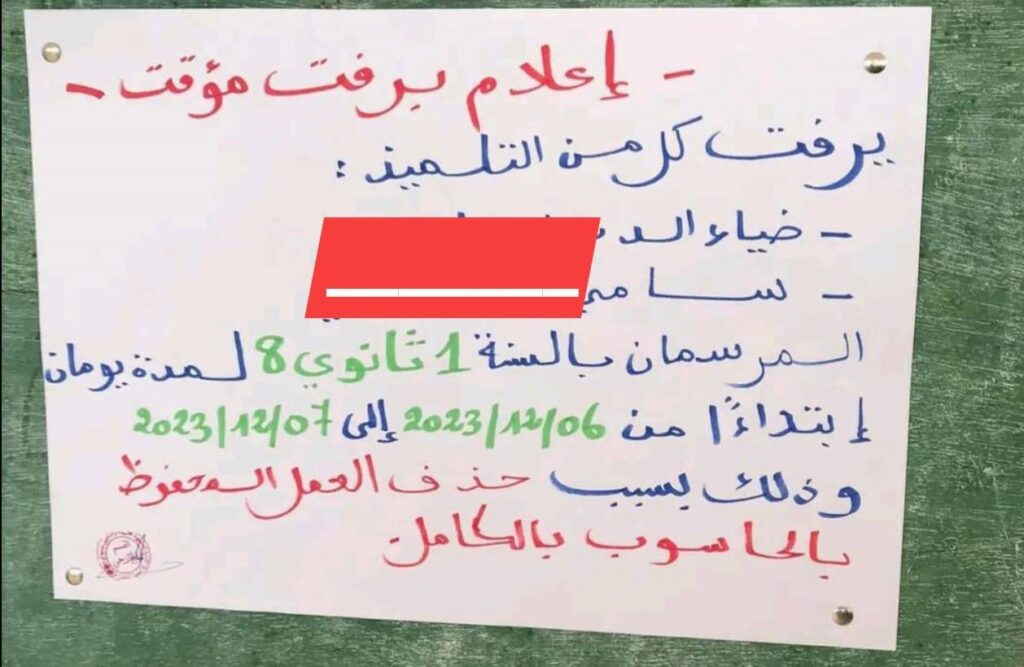 - إعلام برفت مؤقت -
يرفت كل من التلميذ :
- ضياء الد
- سامي
المرسمان بالسنة 1 ثانوي 8 لمدة يومان
إبتداءًا من 2023/12/06 إلى 2023/12/07
وذلك بسبب حذف العمل المحفوظ
بالحاسوب بالكامل.